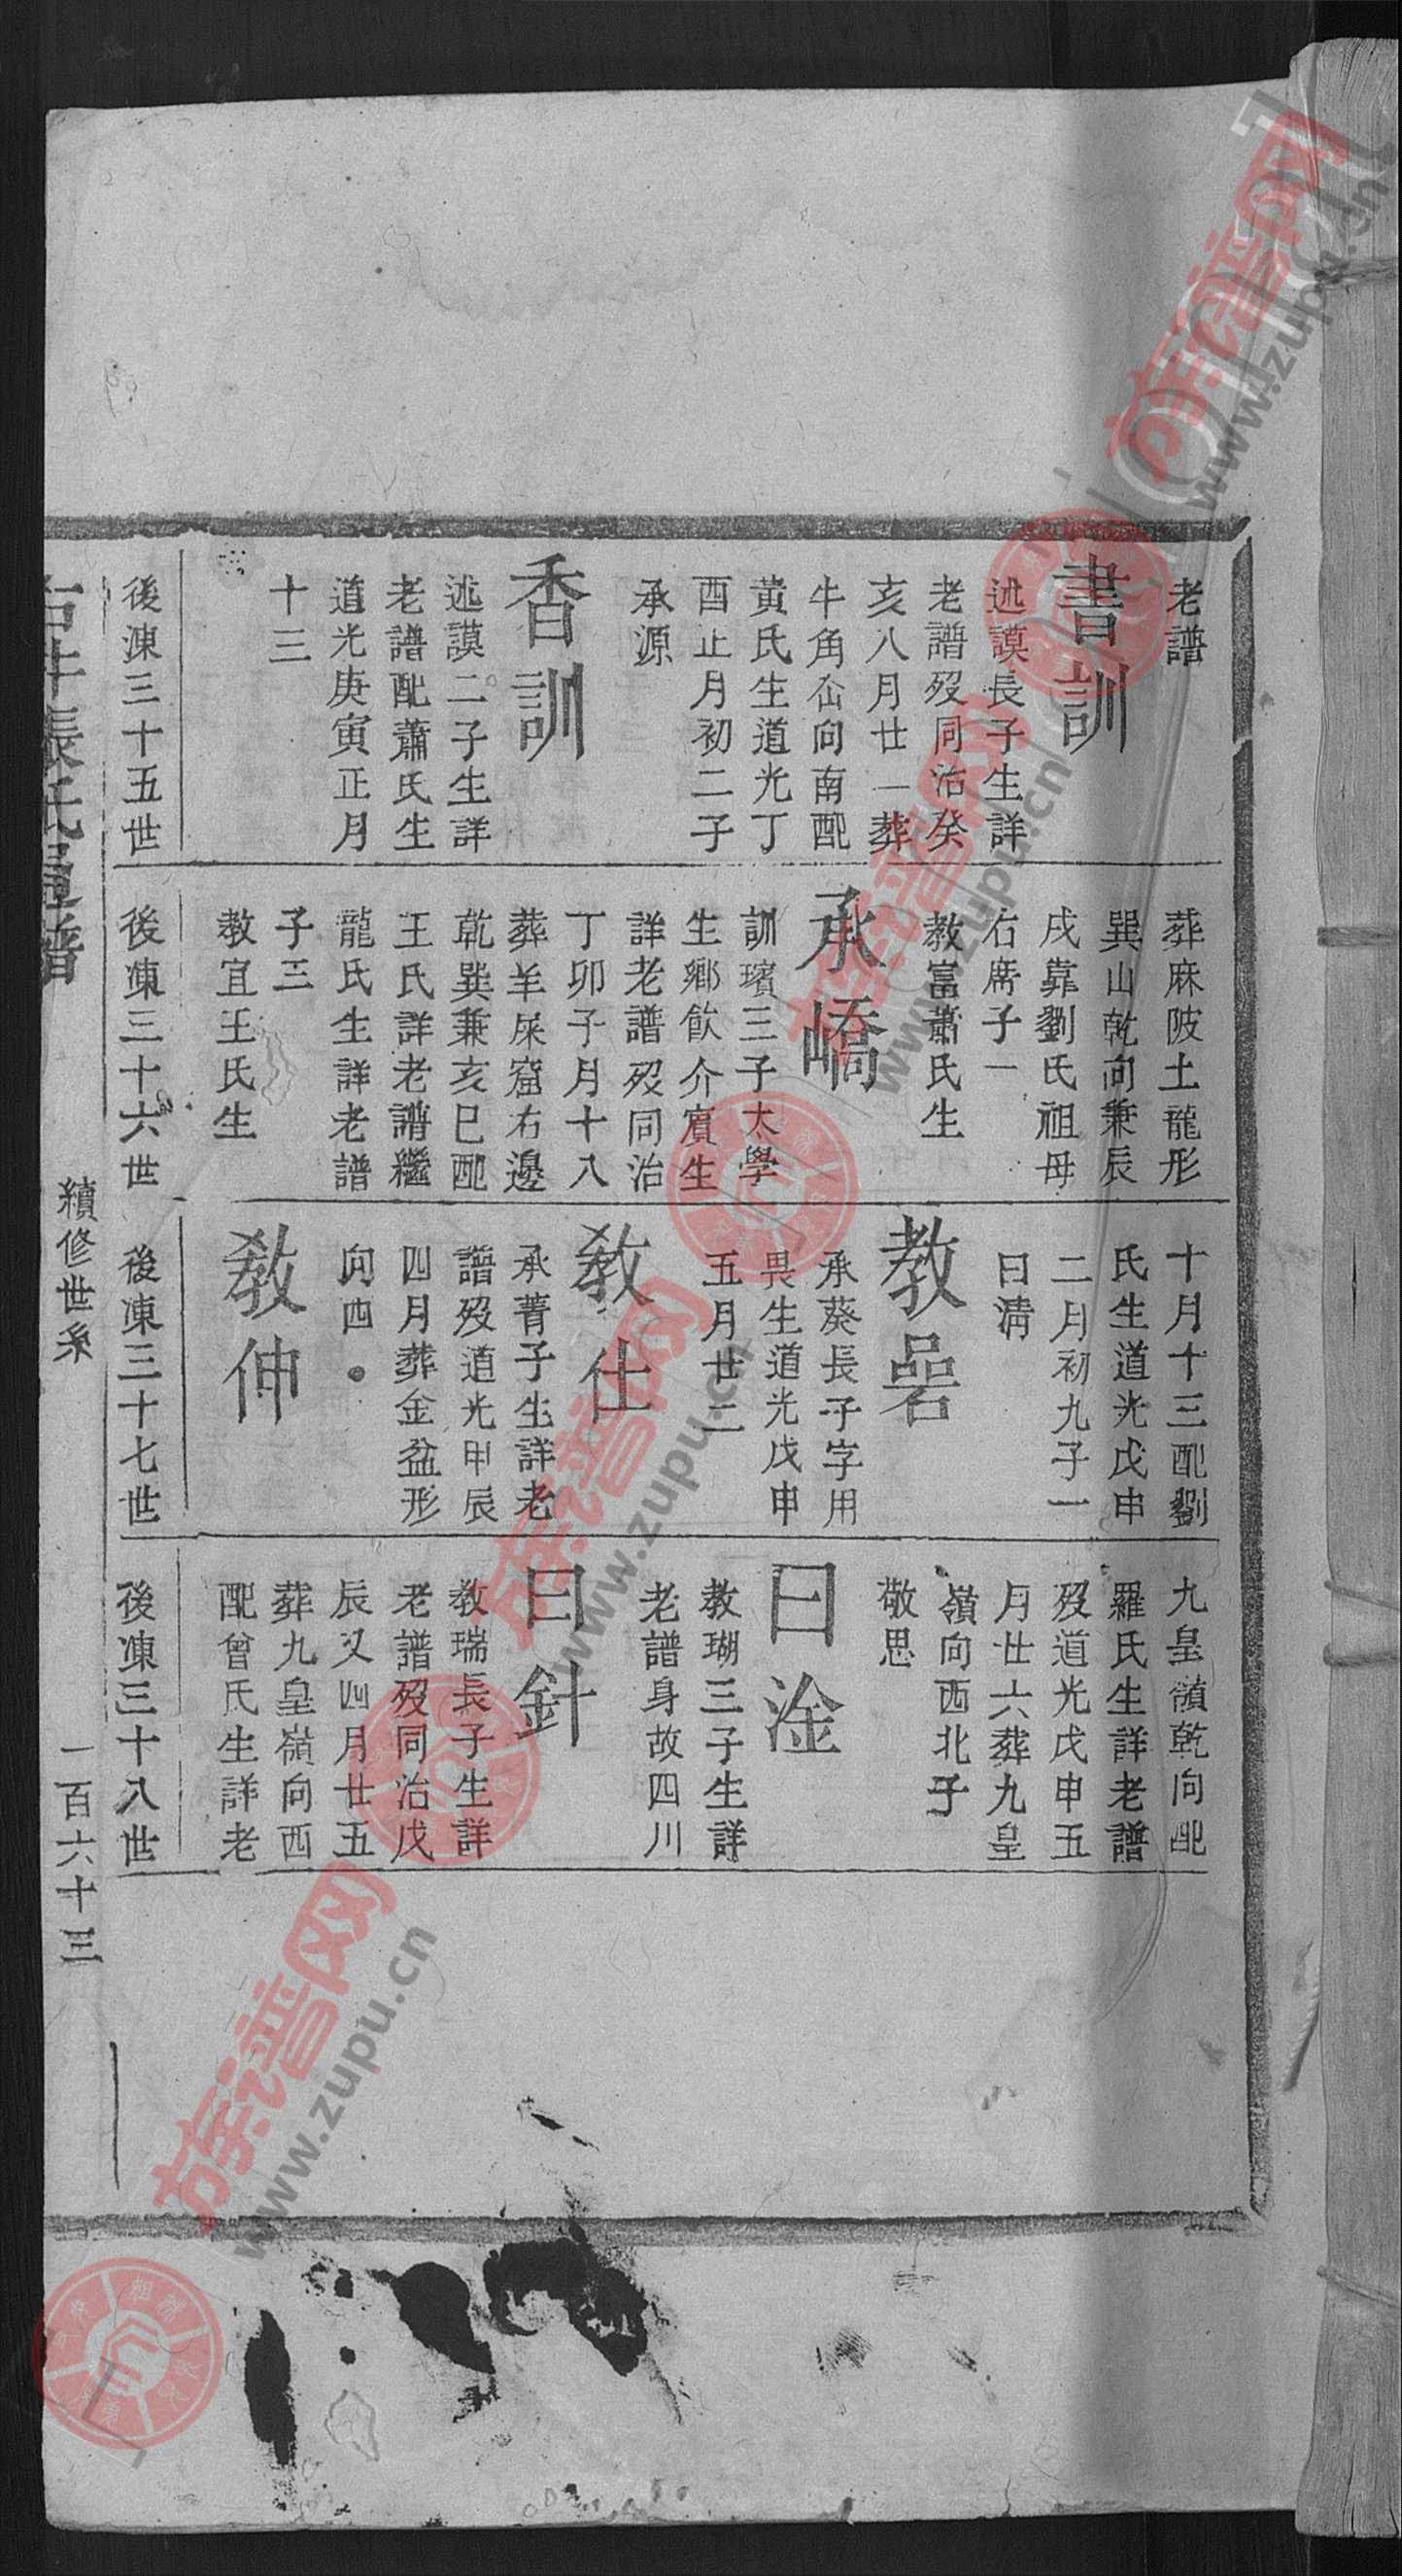 老譜
書訓
述謨長子生詳
老譜歿同治癸
亥八月廿一葬
牛角仚向南配
黃氏生道光丁
酉正月初二子
承源
香訓
述謨二子生詳
老譜配蕭氏生
道光庚寅正月
十三
後凍三十五世
葬麻陂土龍形
巽山乾向兼辰
戌靠劉氏祖母
右席子一
教富蕭氏生
承嶠
訓璸三子太學
生鄉飲介賓生
詳老譜歿同治
丁卯子月十八
葬羊屎窩右邊
乾巽兼亥巳配
王氏詳老譜繼
龍氏生詳老譜
子三
教宜王氏生
後凍三十六世
十月十三配劉
氏生道光戊申
二月初九子一
曰清
教嵒
承葵長子字用
畏生道光戊申
五月廿二
教仕
承菁子生詳老
譜歿道光甲辰
四月葬金盆形
向四
教伸
後凍三十七世
九皇嶺乾向配
羅氏生詳老譜
歿道光戊申五
月廿六葬九皇
嶺向西北子
敬思
曰淦
教瑚三子生詳
老譜身故四川
曰針
教瑞長子生詳
老譜歿同治戊
辰又四月廿五
葬九皇嶺向西
配曾氏生詳老
後凍三十八世
張氏
譜
續修世系
一百六十三
族谱网
www.zupu.cn
族谱网
www.zupu.cn
族谱网
www.zupu.cn
族谱网
www.zupu.cn